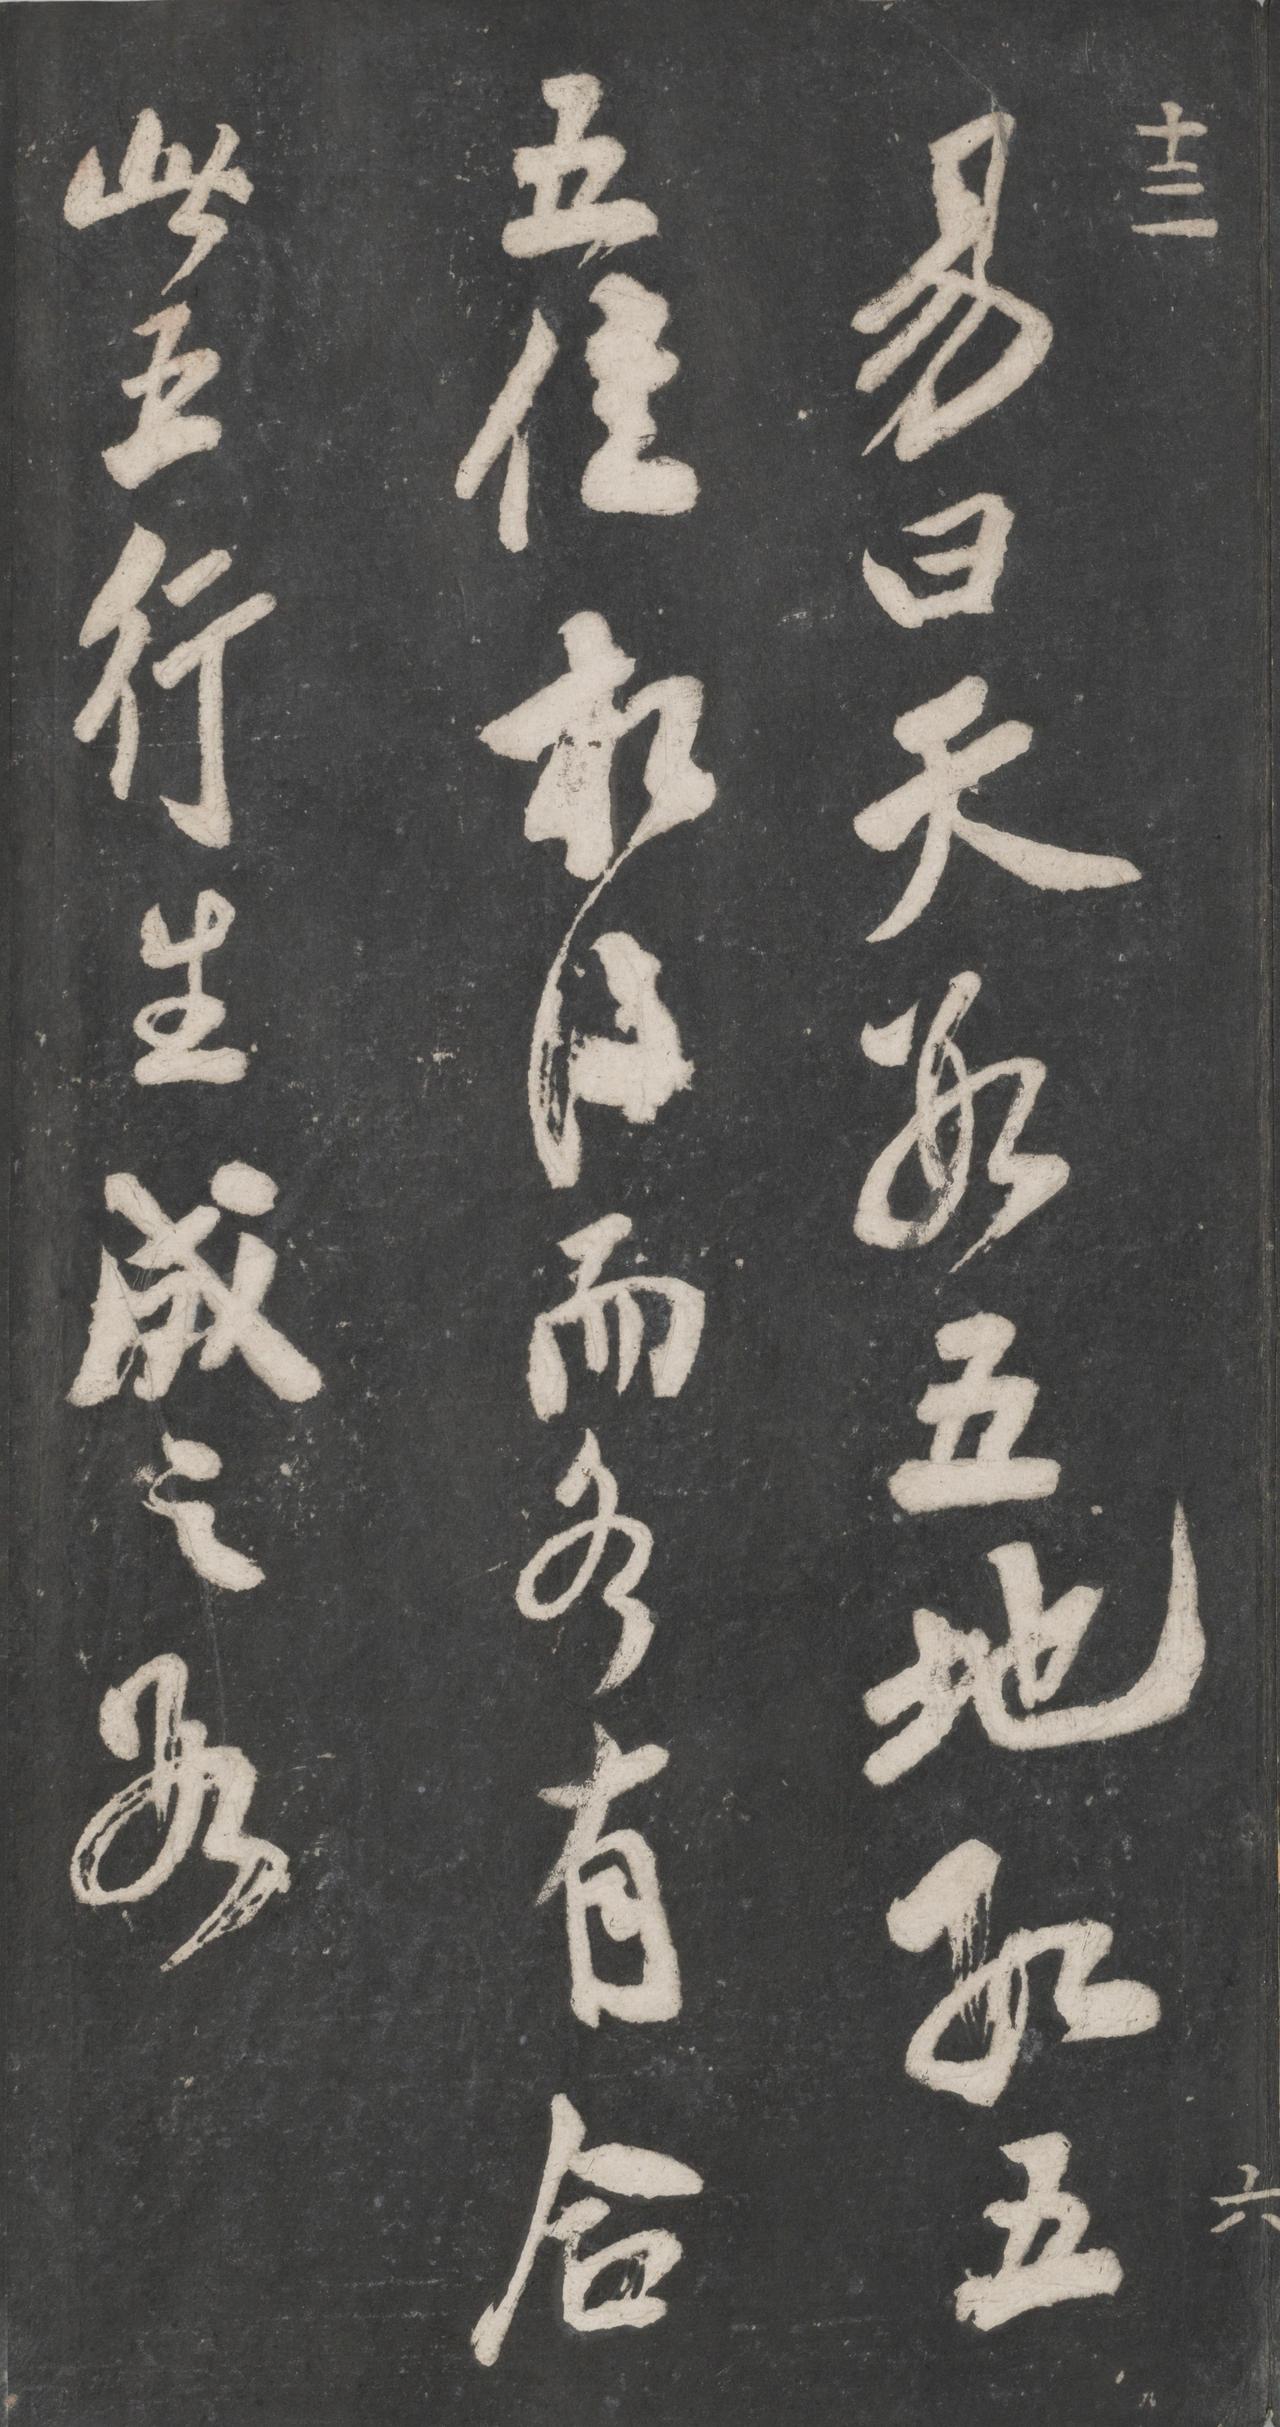 十二
易曰天數五地數五
五位相得而各有合
此五行生成之數
六